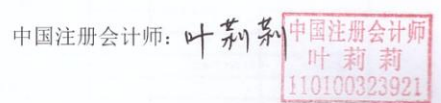 中国注册会计师：叶莉莉
中国注册会计师
叶莉莉
110100323921